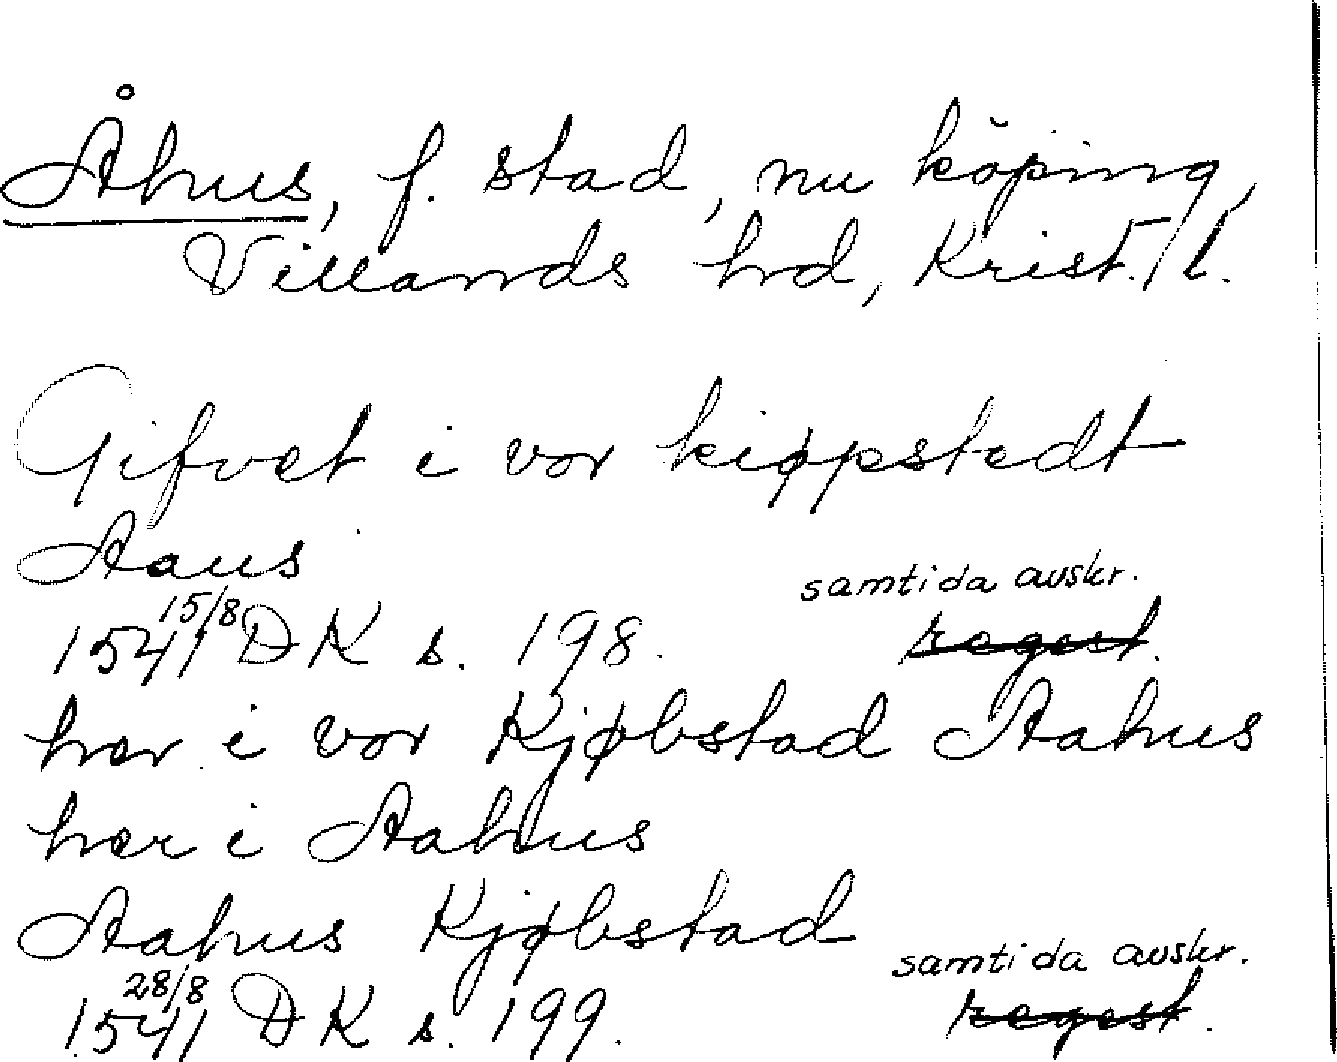 Åhus, f. stad, nu köping,
Villands hrd, Krist. l.
Gifvet i vor kiøpstedt
Aaus
samtida avskr.
1541 15/8 DK s. 198. regest.
hær i vor Kjøbstad Aahus
hær i Aahus
Aahus Kjøbstad
samtida avskr.
1541 28/8 DK s. 199. regest.